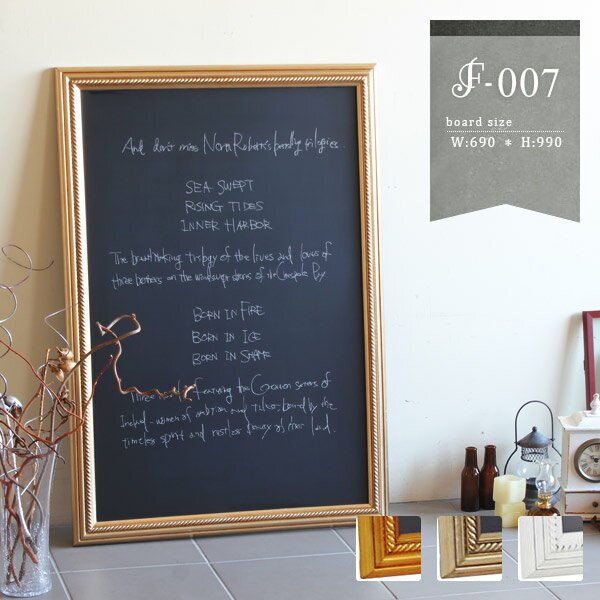 F-007
board size
W:690 * H:990
And don't miss Nora Roberts's family trilogies.
SEA SWEPT
RISING TIDES
INNER HARBOR
The breathtaking trilogy of the lives and loves of
three brothers on the windswept shores of the Chesapeake Bay
BORN IN FIRE
BORN IN ICE
BORN IN SHAME
Three featuring the
Ireland-women of ambition and bound by the
timeless spirit and restless of their land.